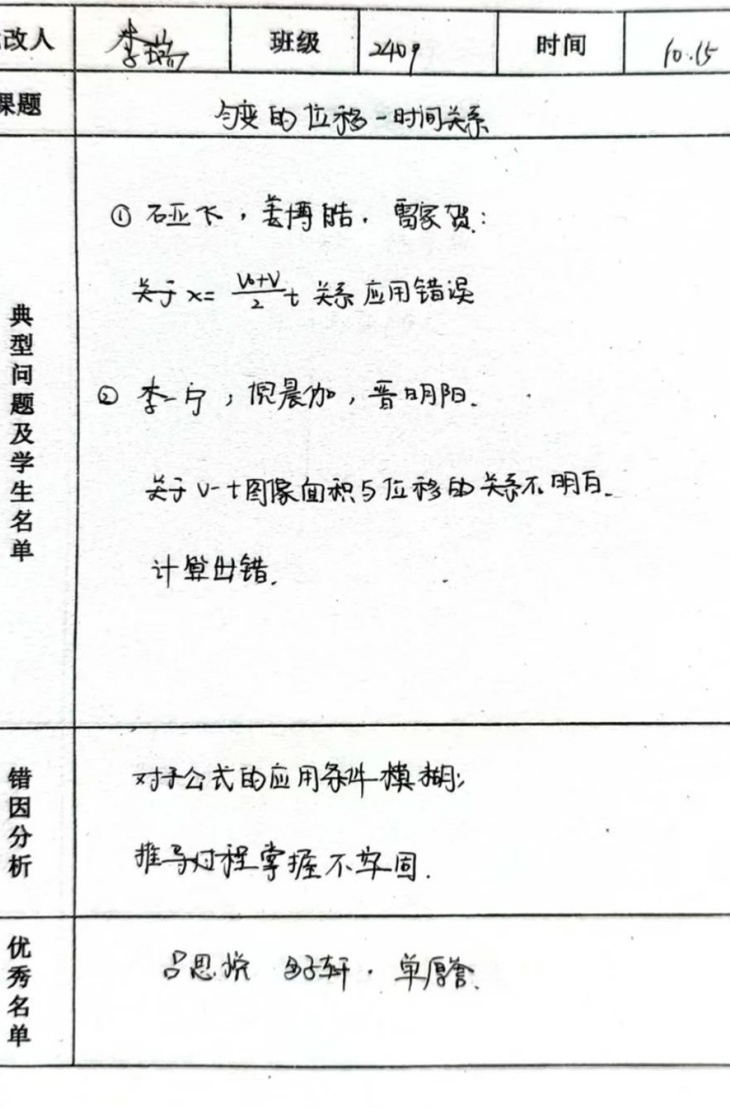 改人 李瑞 班级 2409 时间 10.15
课题 匀变的位移-时间关系
典型问题及学生名单
① 石亚飞,姜博皓,雷家贺:
关于 x= (v₀+v)/2 t 关系应用错误
② 李一宁,倪晨加,晋明阳.
关于 v-t图像面积与位移的关系不明白.
计算出错.
错因分析
对于公式的应用条件模糊;
推导过程掌握不牢固.
优秀名单
吕思悦 子轩. 单厚誉.